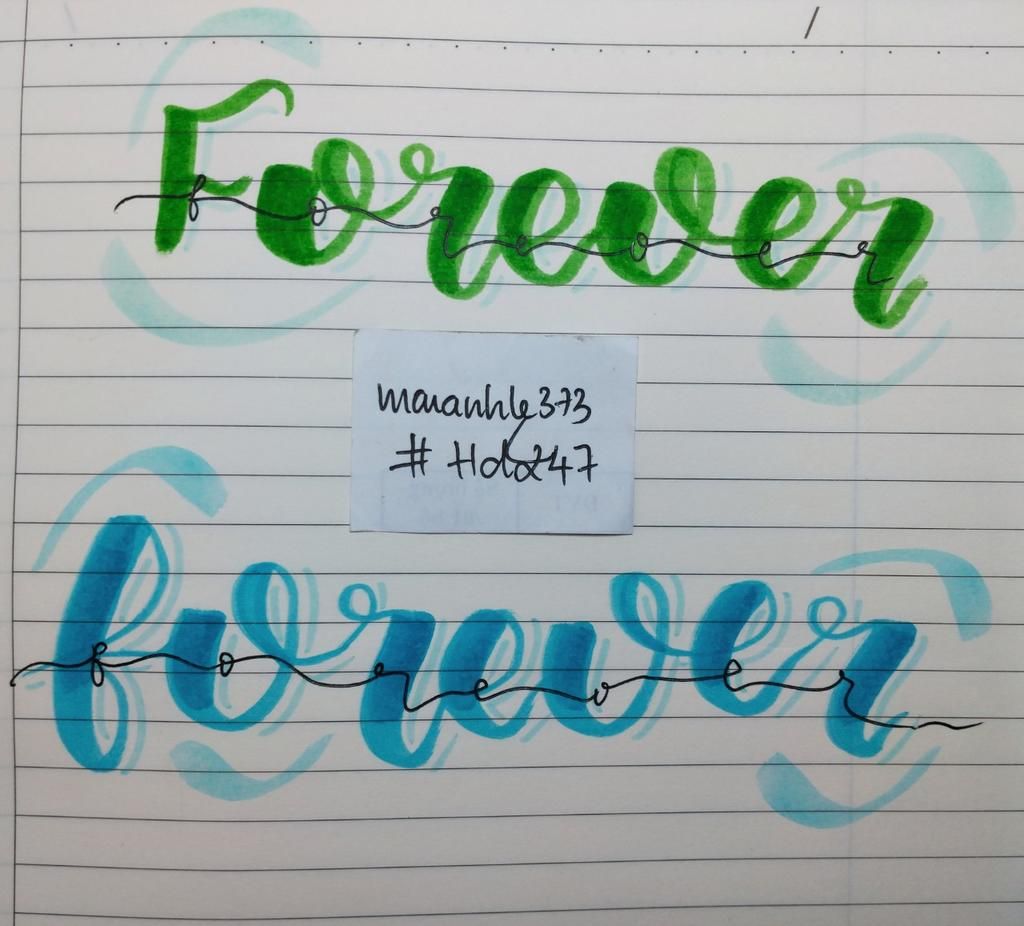 Forever
forever
maianhle373
forever
forever